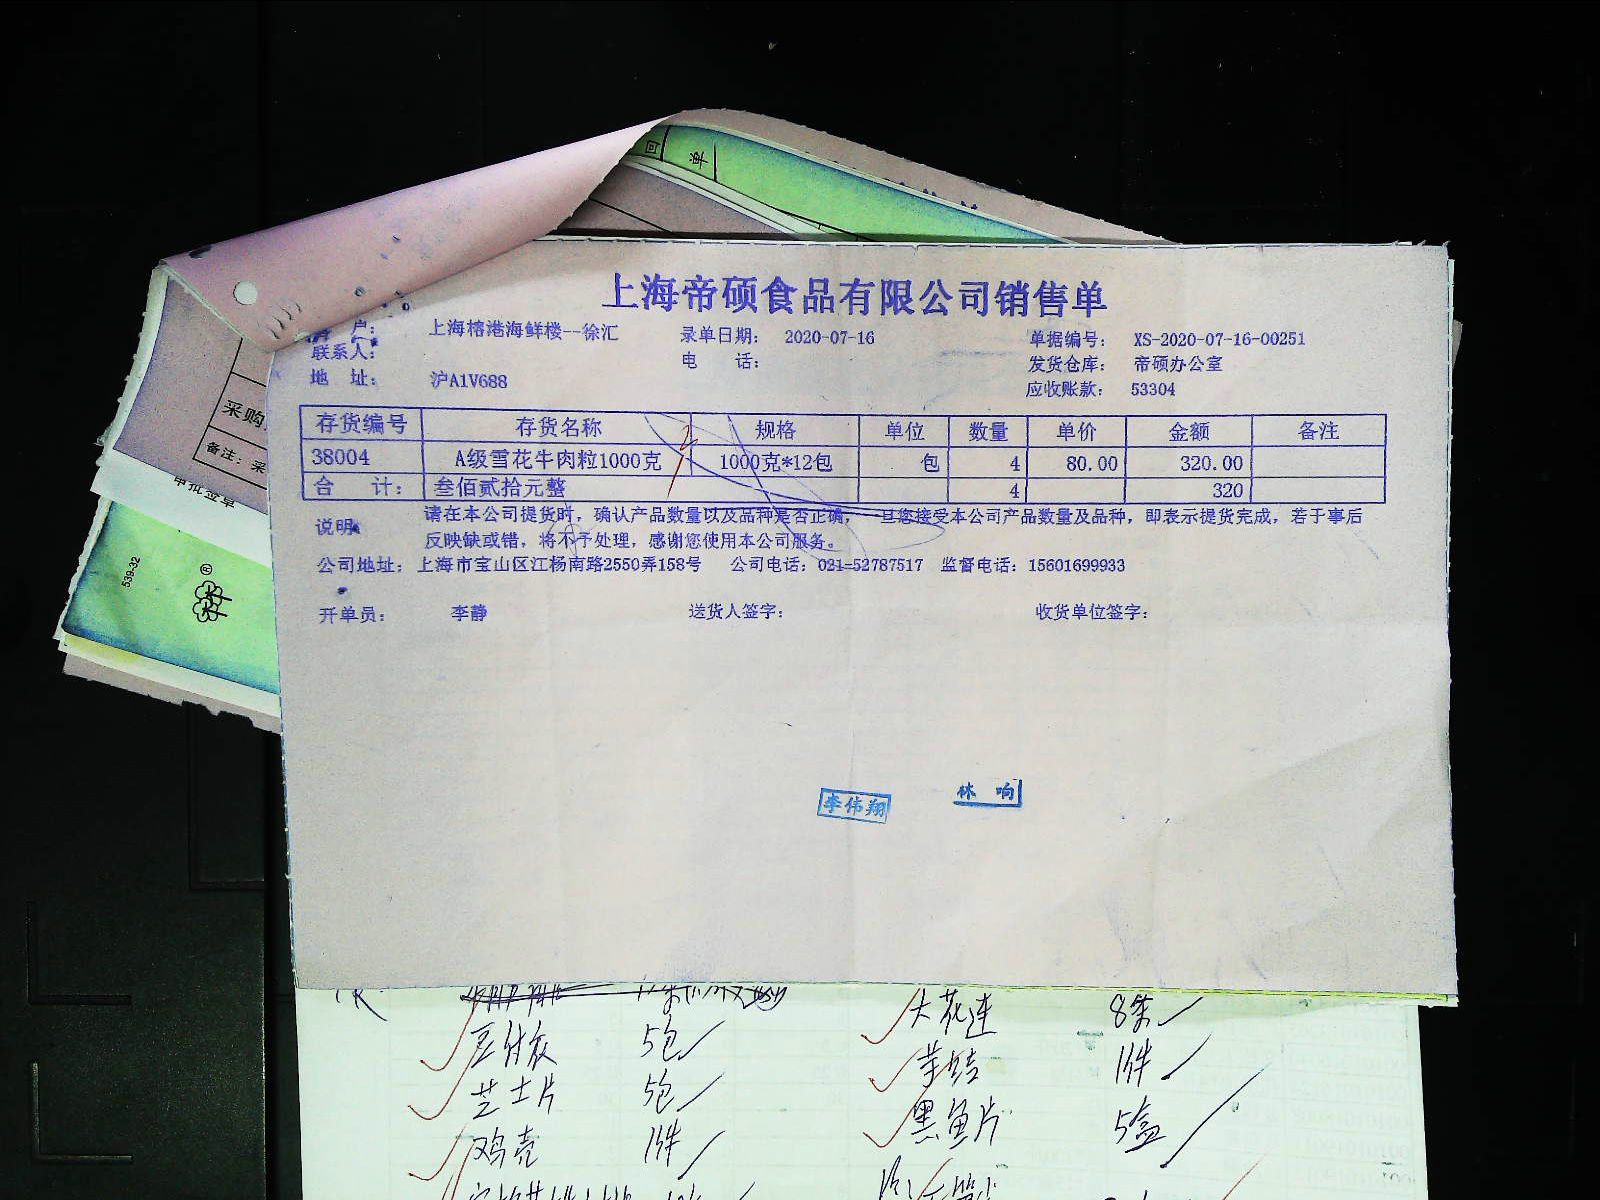 回 单
采购
备注：采
审批签章
539-32
上海帝硕食品有限公司销售单
户： 上海榕港海鲜楼--徐汇 录单日期： 2020-07-16 单据编号： XS-2020-07-16-00251
联系人： 电 话： 发货仓库： 帝硕办公室
地 址： 沪A1V688 应收账款： 53304
存货编号 存货名称 规格 单位 数量 单价 金额 备注
38004 A级雪花牛肉粒1000克 1000克*12包 包 4 80.00 320.00
合 计： 叁佰贰拾元整 4 320
说明 请在本公司提货时，确认产品数量以及品种是否正确，一旦您接受本公司产品数量及品种，即表示提货完成，若于事后
反映缺或错，将不予处理，感谢您使用本公司服务。
公司地址：上海市宝山区江杨南路2550弄158号 公司电话：021-52787517 监督电话：15601699933
开单员： 李静 送货人签字： 收货单位签字：
李伟翔 林响
大花连 8条
5包 1件
芝士片 5包 黑鱼片 5盒
鸡壳 1件